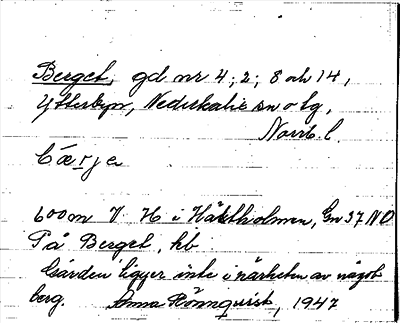 Berget, gd nr 4; 2; 8 och 14,
Ytterbyn, Nederkalix sn o tg,
Norrb. l.
bæ̀rje
600 m V. H i Häktholmen, Gn 37 NO
På Berget, hb
Gården ligger inte i närheten av något
berg. Anna Rönnquist, 1947